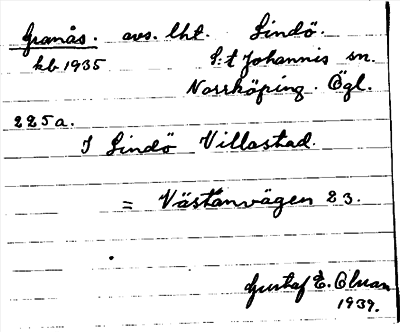 Granås. avs. lht. Lindö.
kb 1935 S:t Johannis sn.
Norrköping. Ögl.
225a.
I Lindö Villastad.
= Västanvägen 23.
Gustaf E. Olsson
1939.